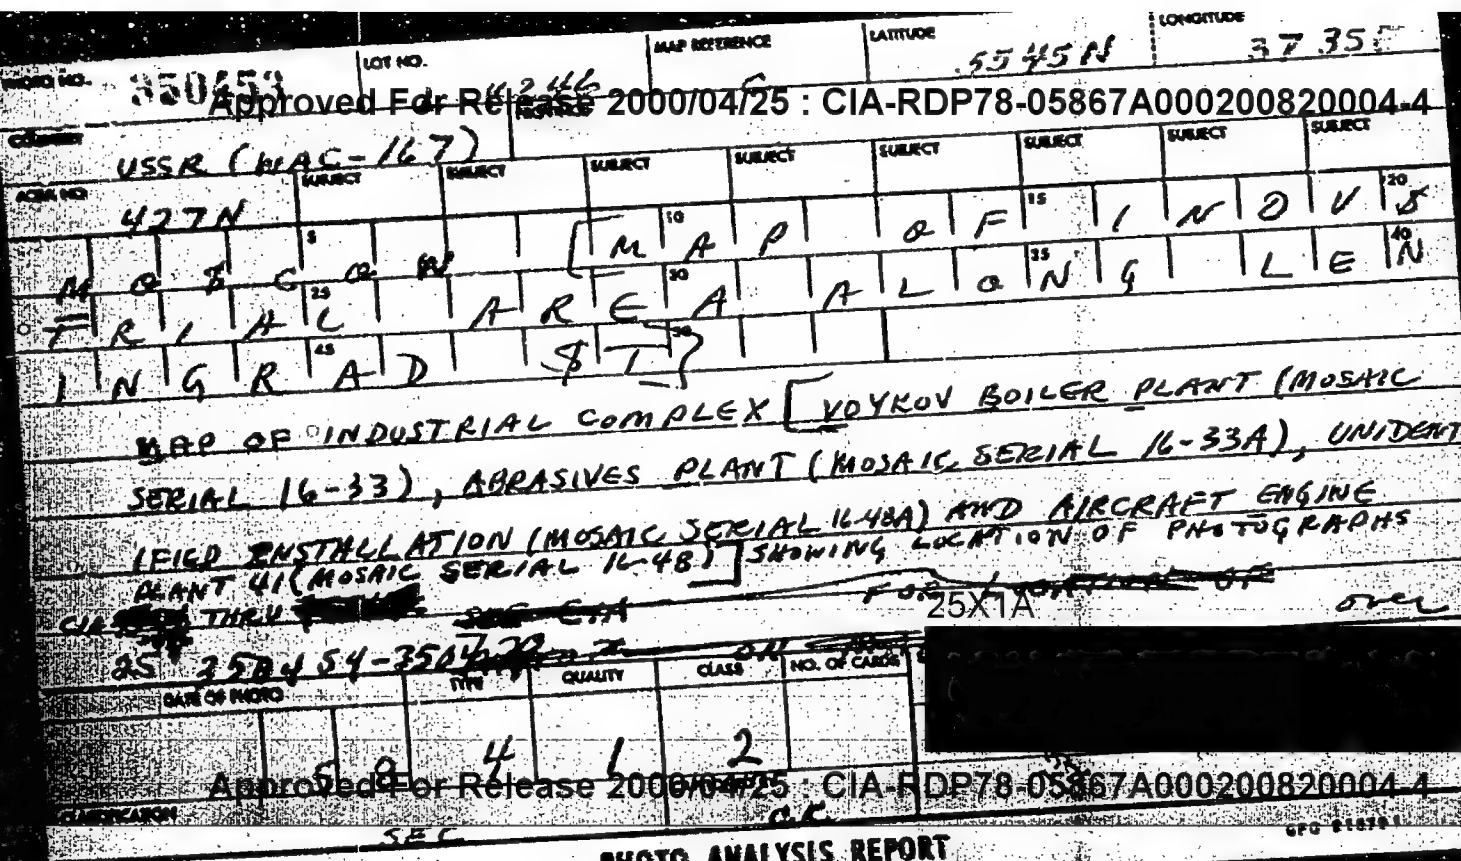 PHOTO NO. LOT NO. MAP REFERENCE LATITUDE LONGITUDE
350453 C 5545N 37 35E
Approved For Release 2000/04/25 : CIA-RDP78-05867A000200820004-4
COUNTRY
USSR (WAC-167)
SUBJECT SUBJECT SUBJECT SUBJECT SUBJECT SUBJECT SUBJECT SUBJECT
427N
5 10 15 20
MOSCOW [MAP OF INDUS
25 30 35 40
TRIAL AREA ALONG LEN
45 50
INGRAD ST]
MAP OF INDUSTRIAL COMPLEX [VOYKOV BOILER PLANT (MOSAIC
SERIAL 16-33), ABRASIVES PLANT (MOSAIC SERIAL 16-33A), UNIDENT
IFIED INSTALLATION (MOSAIC SERIAL 16-48A) AND AIRCRAFT ENGINE
PLANT 41 (MOSAIC SERIAL 16-48)] SHOWING LOCATION OF PHOTOGRAPHS
THRU
25X1A
over
DATE OF PHOTO TYPE QUALITY CLASS NO. OF CARDS
5 8 4 1 2
Approved For Release 2000/04/25 : CIA-RDP78-05867A000200820004-4
CLASSIFICATION
SEC
PHOTO ANALYSIS REPORT